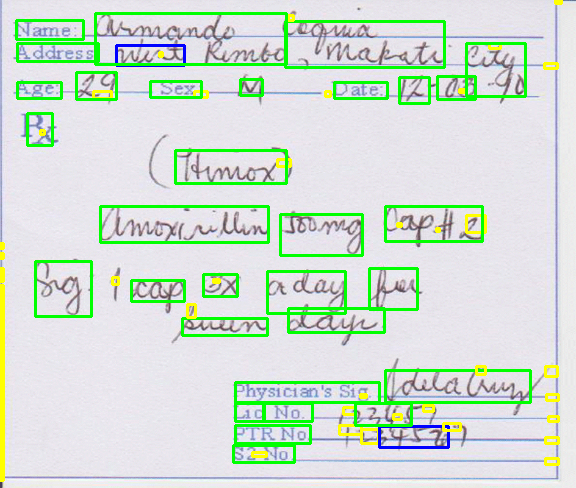 Name: Armando Coquia
Address West Rembo, Makati City
Age: 29 Sex M Date: 12-03-90
Rx
(Himox)
Amoxicillin 500mg Cap #2
Sig: 1 cap 3x a day for
seven days
Physician's Sig. Jdela Cruz
Lic No. 1234567
PTR No 1234567
S2 No